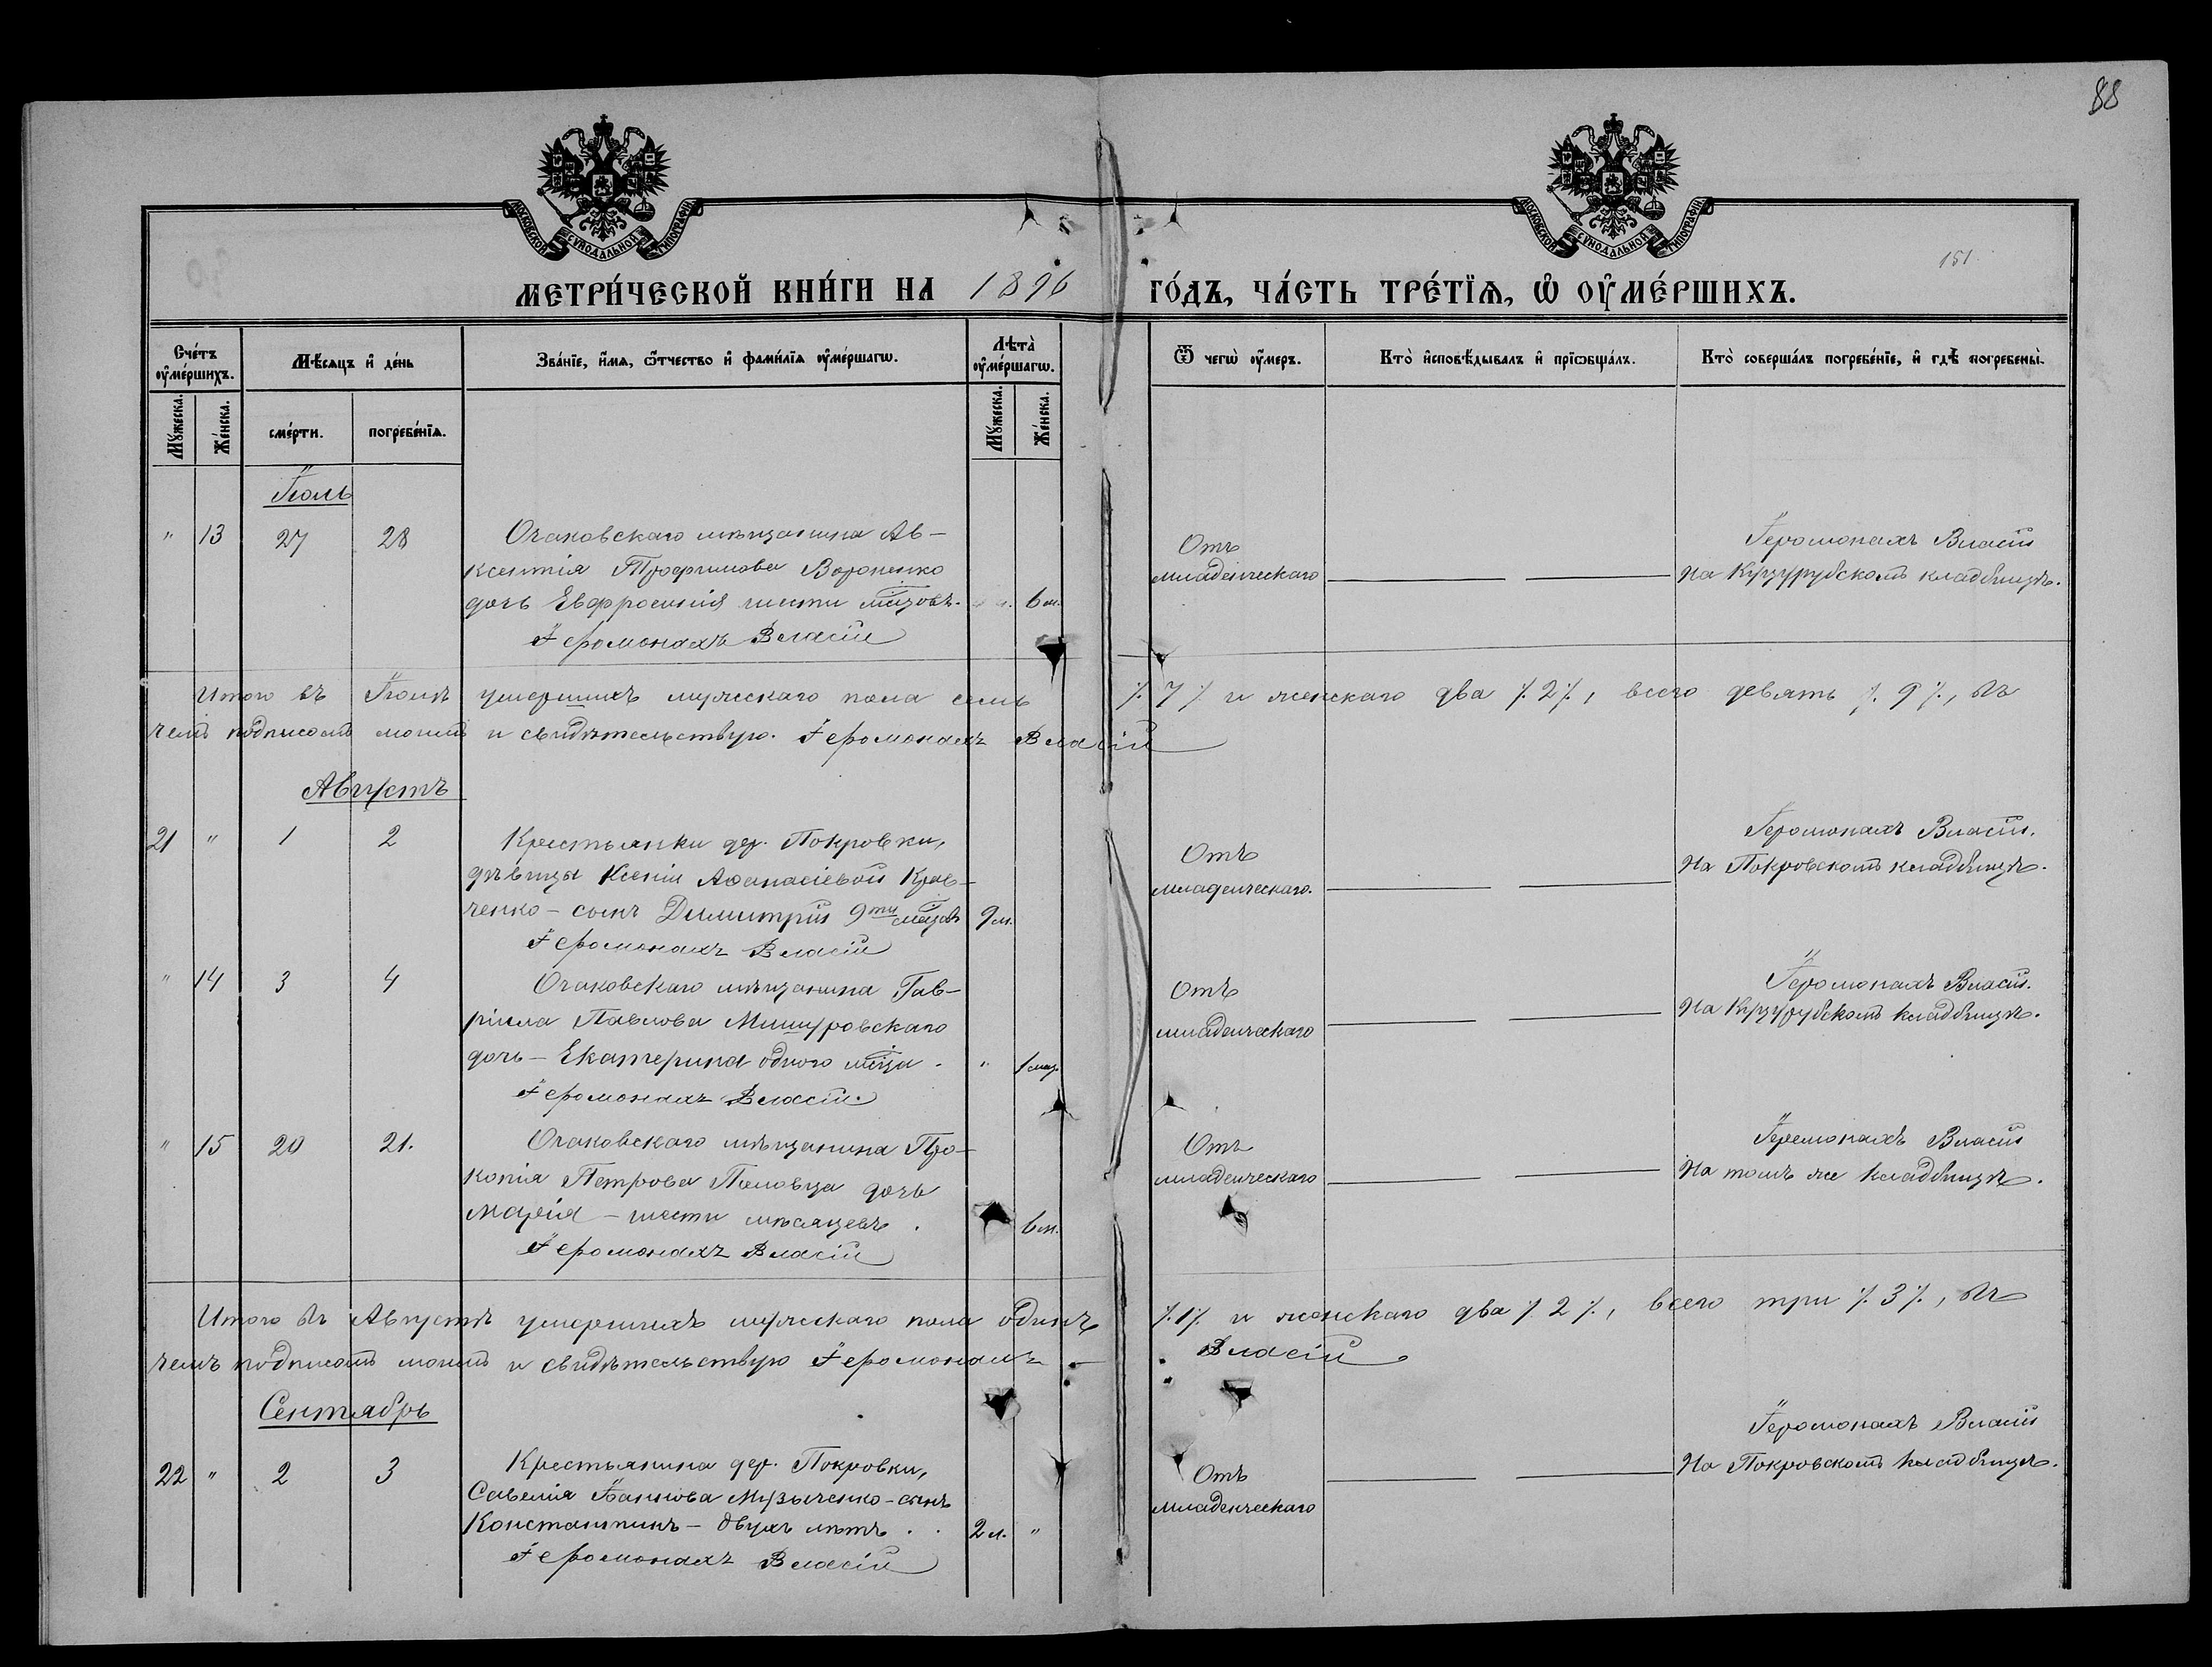 88
151
МОСКОВСКОЙ СѴНОДАЛЬНОЙ ТИПОГРАФІИ
МОСКОВСКОЙ СѴНОДАЛЬНОЙ ТИПОГРАФІИ
МЕТРИ́ЧЕСКОЙ КНИ́ГИ НА 1896 ГО́ДЪ, ЧА́СТЬ ТРЕ́ТЇѦ, Ѡ҆ ОУ҆МЕ́РШИХЪ.
Сче́тъ оу҆ме́ршихъ.
Мѣ́сѧцъ и҆ де́нь
Зва́нїе, и҆́мѧ, ѻ҆́тчество и҆ фами́лїѧ оу҆ме́ршагѡ.
Лѣ̑та̀ оу҆ме́ршагѡ.
Ѿ чегѡ̀ оу҆́меръ.
Кто̀ и҆сповѣ́дывалъ и҆ прїѡбща́лъ.
Кто̀ соверша́лъ погребе́нїе, и҆ гдѣ̀ погребены̀.
Мꙋ́жеска.
Же́нска.
сме́рти.
погребе́нїѧ.
Мꙋ́жеска.
Же́нска.
Іюль
" 13 27 28 Очаковскаго мѣщанина Ав-
ксентія Трофимова Вороненко
дочь Евфросинія шести мѣцовъ. 6 м.
Іеромонахъ Власій
Отъ
младенческаго
Іеромонахъ Власій
На Куцурубскомъ кладбищѣ.
Итого въ Іюлѣ умершихъ мужескаго пола семь ⁒ 7 ⁒ и женскаго два ⁒ 2 ⁒, всего девять ⁒ 9 ⁒, въ
чемъ подписомъ моимъ и свидѣтельствую. Іеромонахъ Власій
Августъ
21 " 1 2 Крестьянки дер. Покровки,
дѣвицы Ксеніи Аѳанасіевой Крав-
ченко - сынъ Димитрій 9ти мѣцовъ 9 м.
Іеромонахъ Власій
Отъ
младенческаго.
Іеромонахъ Власій.
На Покровскомъ кладбищѣ.
" 14 3 4 Очаковскаго мѣщанина Гав-
ріила Павлова Мишуровскаго
дочь - Екатерина одного мѣца. " 1 мц.
Іеромонахъ Власій.
Отъ
младенческаго
Іеромонахъ Власій.
На Куцурубскомъ кладбищѣ.
" 15 20 21. Очаковскаго мѣщанина Про-
копія Петрова Половца дочь
Марія - шести мѣсяцевъ. 6 м.
Іеромонахъ Власій
Отъ
младенческаго
Іеромонахъ Власій
На томъ же кладбищѣ.
Итого въ Августѣ умершихъ мужескаго пола одинъ ⁒ 1 ⁒ и женскаго два ⁒ 2 ⁒, всего три ⁒ 3 ⁒, въ
чемъ подписомъ моимъ и свидѣтельствую Іеромонахъ Власій
Сентябрь
22 " 2 3 Крестьянина дер. Покровки,
Савелія Іаннова Музыченко - сынъ
Константинъ - двухъ лѣтъ.. 2 л. "
Іеромонахъ Власій
Отъ
младенческаго
Іеромонахъ Власій
На Покровскомъ кладбищѣ.